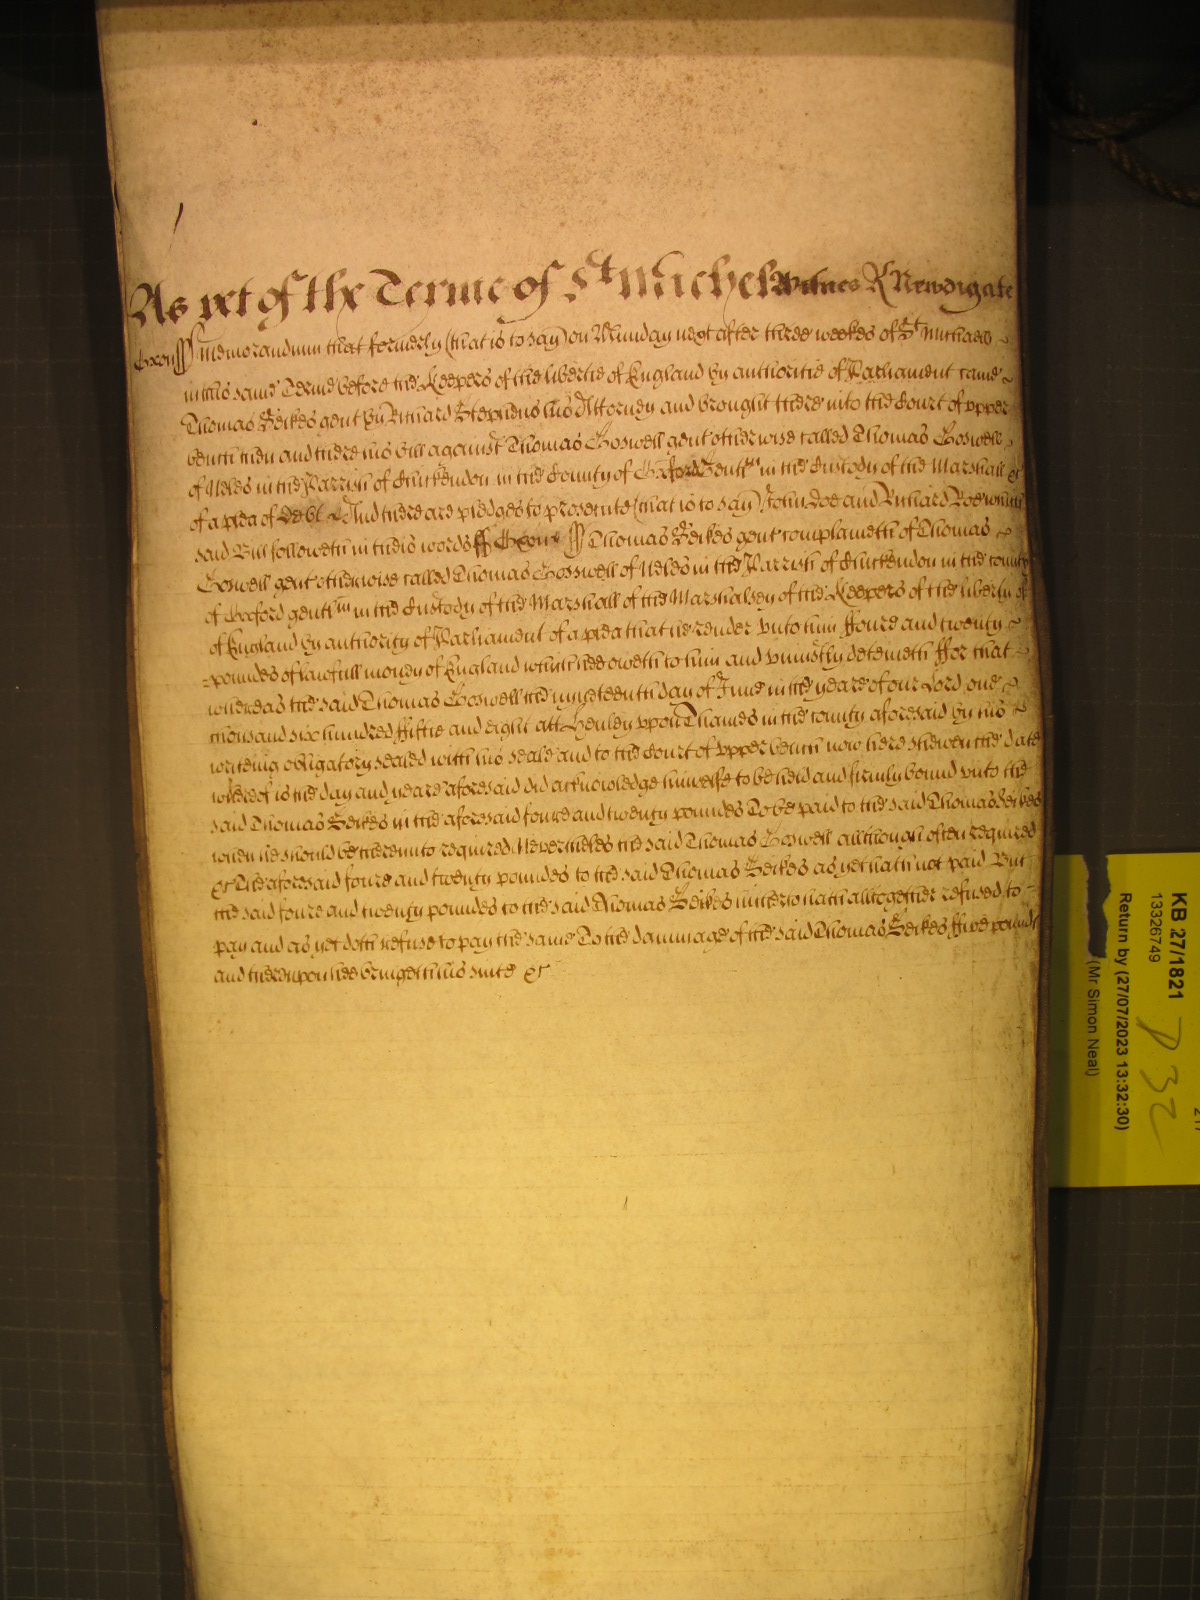 As yet of the Terme of St Michel Witnes R Newdigate
Oxon ss Memorandum that formerly (that is to say) on Munday next after three weekes of St Michaell
in this same Terme before the Keepers of the libertie of England by authoritie of Parliament came
Thomas Seikes gent by Richard Stephens his Attorney and brought there into the Court of vpper
bench then and there his bill against Thomas Boswell gent otherwise called Thomas Boswell
of in the Parrish of Chuckendon in the County of Oxford Gentln in the Custody of the Marshall &c
of a plea of Debt And there are pledges to prosecute (that is to say) John Doe and Richard Roe which
said Bill followeth in theis words ss Oxon ss Thomas Seikes gent complaineth of Thomas
Boswell gent otherwise called Thomas Bosswell of in the Parrish of Chuckendon in the county
of Oxford gentln in the Custody of the Marshall of the Marshalsey of the Keepers of the liberty
of England by authority of Parliament of a plea that he render vnto him ffoure and twenty
poundes of lawfull money of England which hee oweth to him and vniustly deteineth ffor that
whereas the said Thomas Boswell the nyneteenth day of June in the yeare of our Lord one
thousand six hundred fiftie and eight att Henley vpon Thames in the county aforesaid by his
writeing obligatory sealed with his seale and to the Court of vpper bench now here shewen the date
whereof is the day and yeare aforesaid did acknowledge himselfe to be held and firmly bound vnto the
said Thomas Seikes in the aforesaid foure and twenty poundes To be paid to the said Thomas Seikes
when he should be thereunto required Neverthelés the said Thomas Boswell allthough often required
&c The aforesaid foure and twenty poundes to the said Thomas Seikes as yet hath not paid But
the said foure and twenty poundes to the said Thomas Seikes hitherto hath alltogether refused to
pay and as yet doth refuse to pay the same To the dammage of the said Thomas Seikes ffive pounds
and thereupon hee bringeth his suite &c
KB 27/1821
13326749
Return by (27/07/2023 13:32:30)
(Mr Simon Neal)
D 32